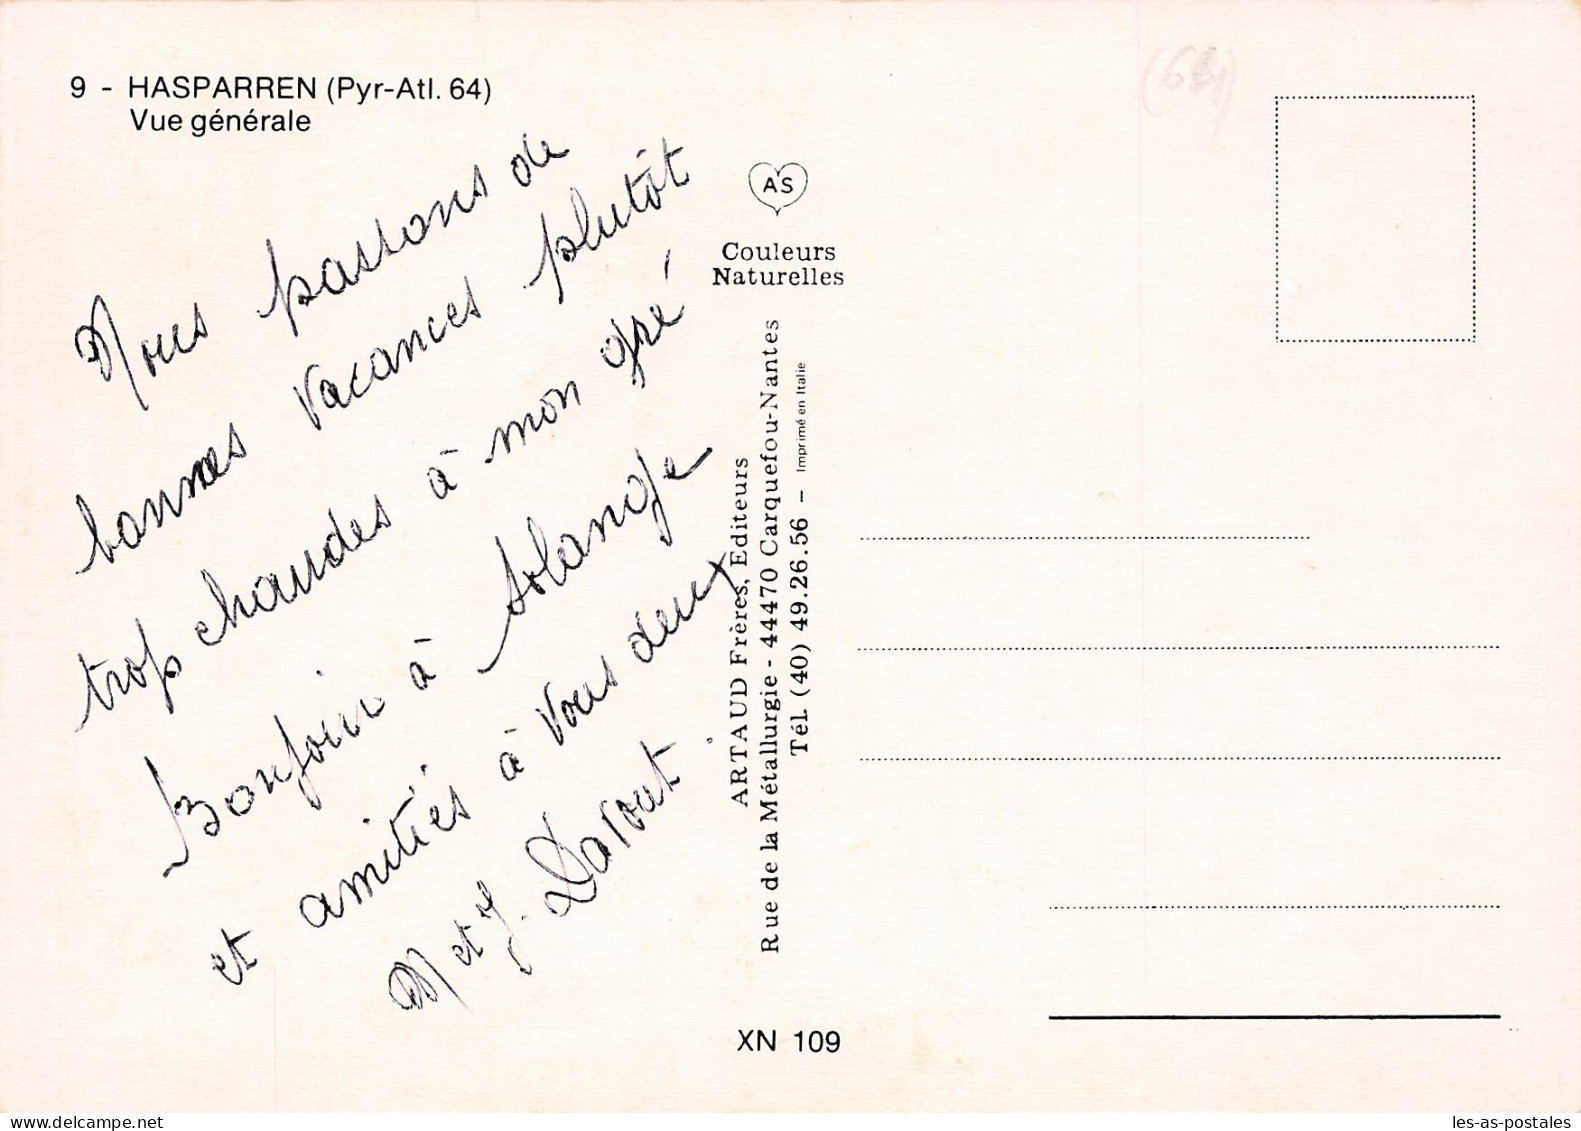 9 - HASPARREN (Pyr-Atl. 64)
Vue générale
Nous passons de
bonnes vacances plutôt
trop chaudes à mon gré
Bonjour à Solange
et amitiés à vous deux
M et J.
AS
Couleurs
Naturelles
ARTAUD Frères, Editeurs
Rue de la Métallurgie - 44470 Carquefou-Nantes
Tél. (40) 49.26.56 – Imprimé en Italie
XN 109
les-as-postales